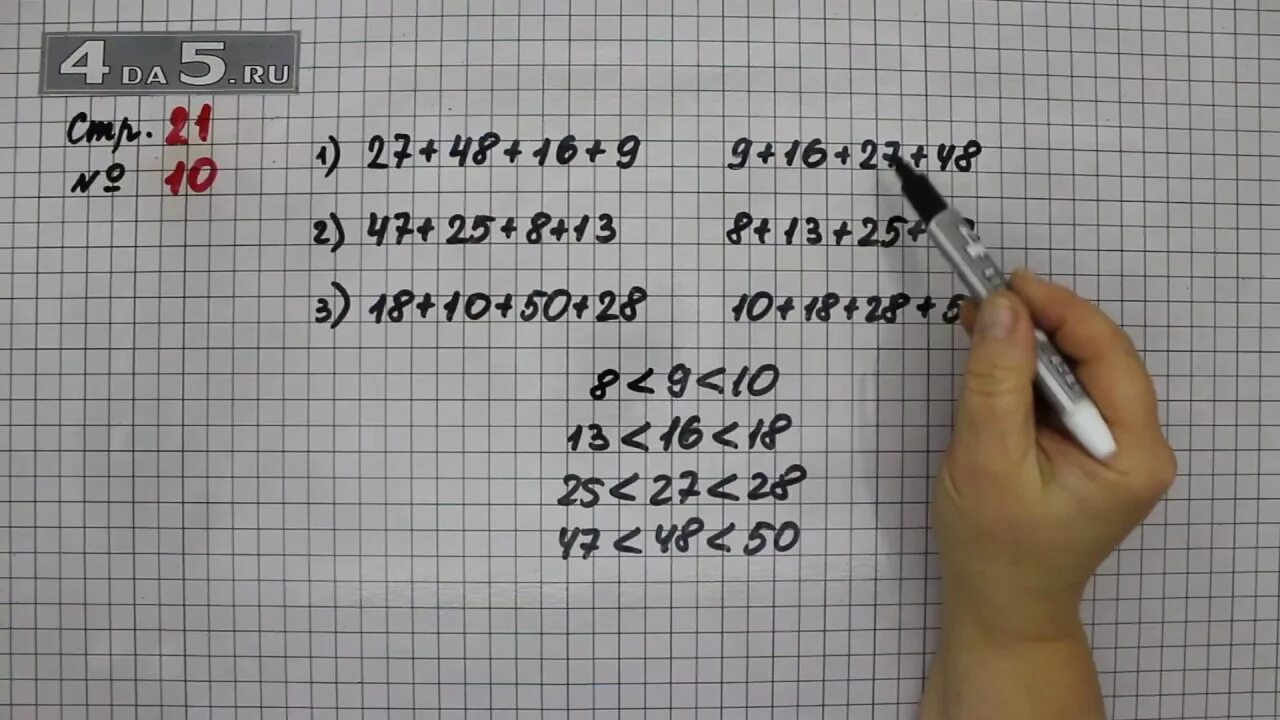 4DA5.RU
Стр. 21
№ 10
1) 27+48+16+9
9+16+27+48
2) 47+25+8+13
8+13+25+
3) 18+10+50+28
10+18+28+5
8<9<10
13<16<18
25<27<28
47<48<50